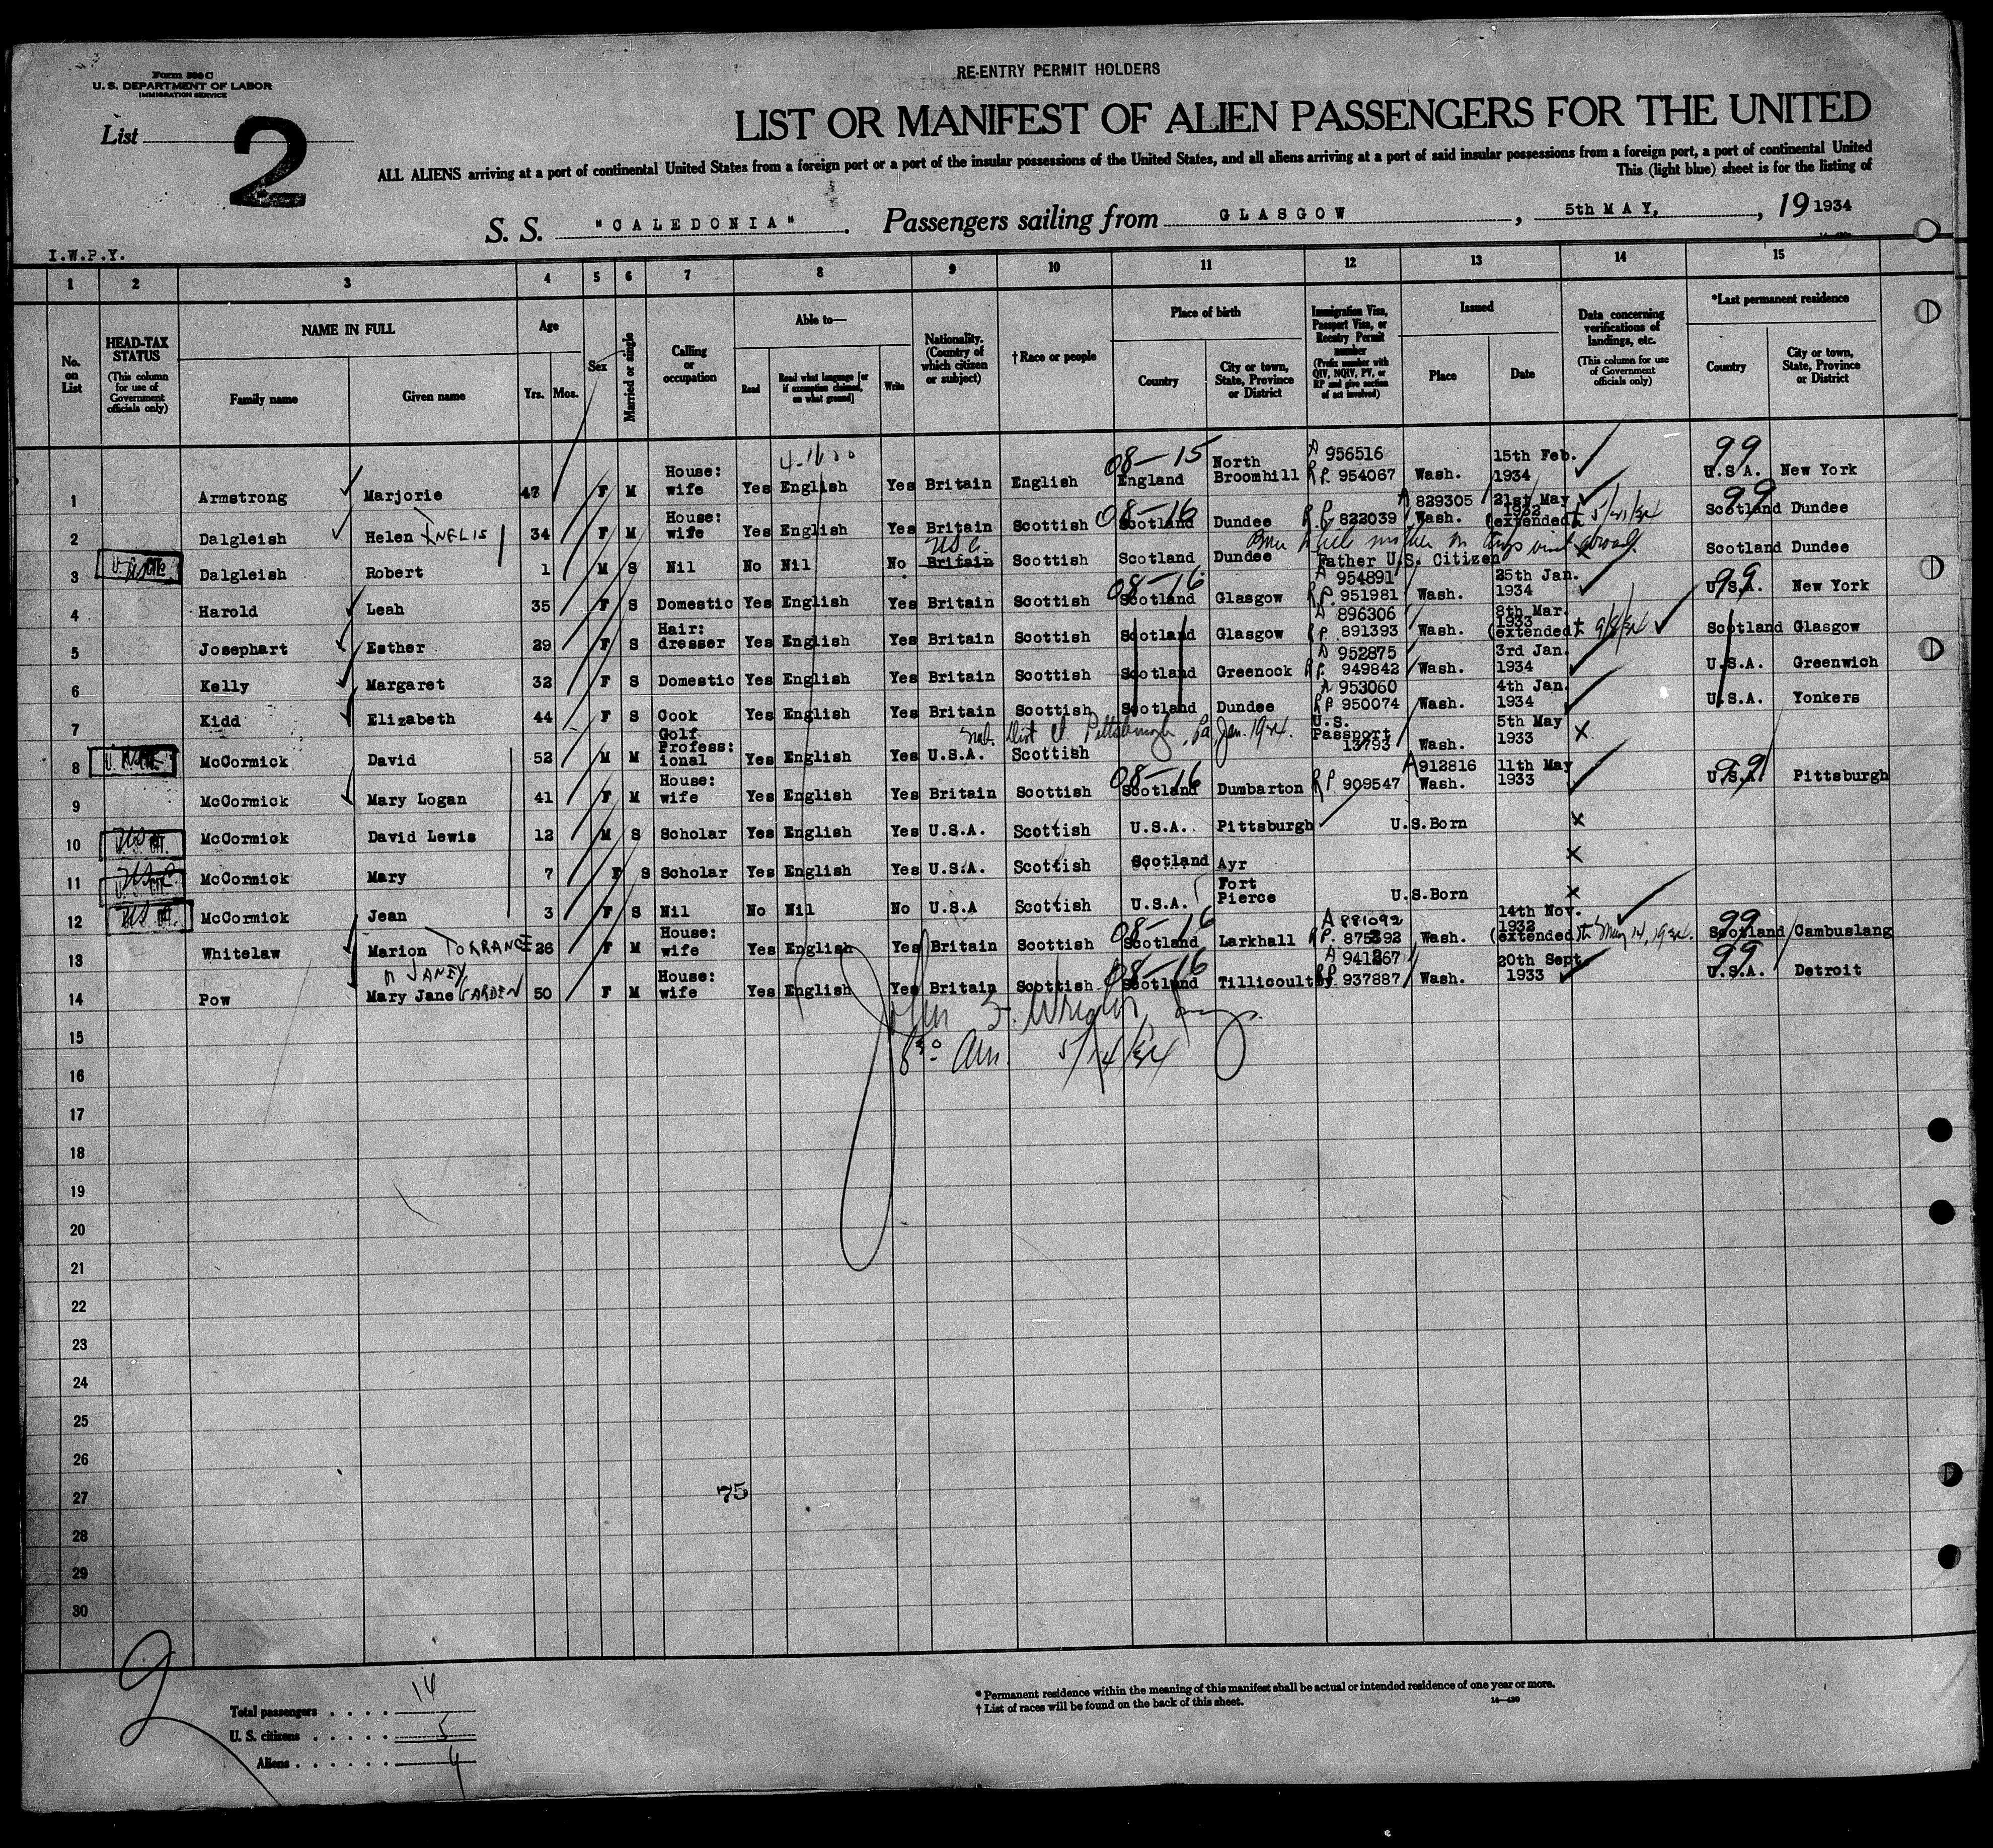 Form 500 C
U. S. DEPARTMENT OF LABOR
IMMIGRATION SERVICE
RE-ENTRY PERMIT HOLDERS
List 2
LIST OR MANIFEST OF ALIEN PASSENGERS FOR THE UNITED
ALL ALIENS arriving at a port of continental United States from a foreign port or a port of the insular possessions of the United States, and all aliens arriving at a port of said insular possessions from a foreign port, a port of continental United
This (light blue) sheet is for the listing of
S. S. "CALEDONIA" . Passengers sailing from GLASGOW , 5th MAY, , 19 1934
I.W.P.Y.
1 2 3 4 5 6 7 8 9 10 11 12 13 14 15
No. on List
HEAD-TAX STATUS (This column for use of Government officials only)
NAME IN FULL
Family name Given name
Age
Yrs. Mos.
Sex
Married or single
Calling or occupation
Able to—
Read Read what language [or if exemption claimed, on what ground] Write
Nationality. (Country of which citizen or subject)
† Race or people
Place of birth
Country City or town, State, Province or District
Immigration Visa, Passport Visa, or Reentry Permit number (Prefix number with QIV, NQIV, PV, or RP and give section of act involved)
Issued
Place Date
Data concerning verifications of landings, etc. (This column for use of Government officials only)
*Last permanent residence
Country City or town, State, Province or District
1 Armstrong Marjorie 47 F M House: wife Yes English Yes Britain English 08-15 England North Broomhill A 956516 RP. 954067 Wash. 15th Feb. 1934 99 U.S.A. New York
2 Dalgleish Helen INELIS 34 F M House: wife Yes English Yes Britain Scottish 08-16 Scotland Dundee A 829305 RP 822039 Wash. 21st May 1932 (extended to 5/21/34 99 Scotland Dundee
3 U.S. Cit. Dalgleish Robert 1 M S Nil No Nil No Britain USC. Scottish Scotland Dundee Born while mother on temp visit abroad. Father U.S. Citizen Scotland Dundee
4 Harold Leah 35 F S Domestic Yes English Yes Britain Scottish 08-16 Scotland Glasgow A 954891 RP. 951981 Wash. 25th Jan. 1934 99 U.S.A. New York
5 Josephart Esther 29 F S Hair: dresser Yes English Yes Britain Scottish Scotland Glasgow A 896306 RP. 891393 Wash. 8th Mar. 1933 (extended to 9/8/34 Scotland Glasgow
6 Kelly Margaret 32 F S Domestic Yes English Yes Britain Scottish Scotland Greenock A 952875 RP. 949842 Wash. 3rd Jan. 1934 U.S.A. Greenwich
7 Kidd Elizabeth 44 F S Cook Yes English Yes Britain Scottish Scotland Dundee A 953060 RP 950074 Wash. 4th Jan. 1934 U.S.A. Yonkers
8 McCormick David 52 M M Golf Profess: ional Yes English Yes U.S.A. Scottish Nat. Dist Ct Pittsburgh, Pa, Jan. 1924. U.S. Passport 13793 Wash. 5th May 1933 X
9 McCormick Mary Logan 41 F M House: wife Yes English Yes Britain Scottish 08-16 Scotland Dumbarton A 912816 RP 909547 Wash. 11th May 1933 99 U.S.A. Pittsburgh
10 McCormick David Lewis 12 M S Scholar Yes English Yes U.S.A. Scottish U.S.A. Pittsburgh U.S.Born X
11 McCormick Mary 7 F S Scholar Yes English Yes U.S.A. Scottish Scotland Ayr X
12 McCormick Jean 3 F S Nil No Nil No U.S.A Scottish U.S.A. Fort Pierce U.S.Born X
13 Whitelaw Marion TORRANCE 26 F M House: wife Yes English Yes Britain Scottish 08-16 Scotland Larkhall A 881092 RP. 875392 Wash. 14th Nov. 1932 (extended to May 14, 1934. 99 Scotland Cambuslang
14 Pow Mary Jane n JANEY CARDEN 50 F M House: wife Yes English Yes Britain Scottish 08-16 Scotland Tillicoultry A 941267 RP 937887 Wash. 20th Sept 1933 99 U.S.A. Detroit
15
John F. Wright,
16 5/14/34
17
18
19
20
21
22
23
24
25
26
27 75
28
29
30
Total passengers . . . . 14
U. S. citizens . . . . . 5
Aliens . . . . . . 4
* Permanent residence within the meaning of this manifest shall be actual or intended residence of one year or more.
† List of races will be found on the back of this sheet.
14—430